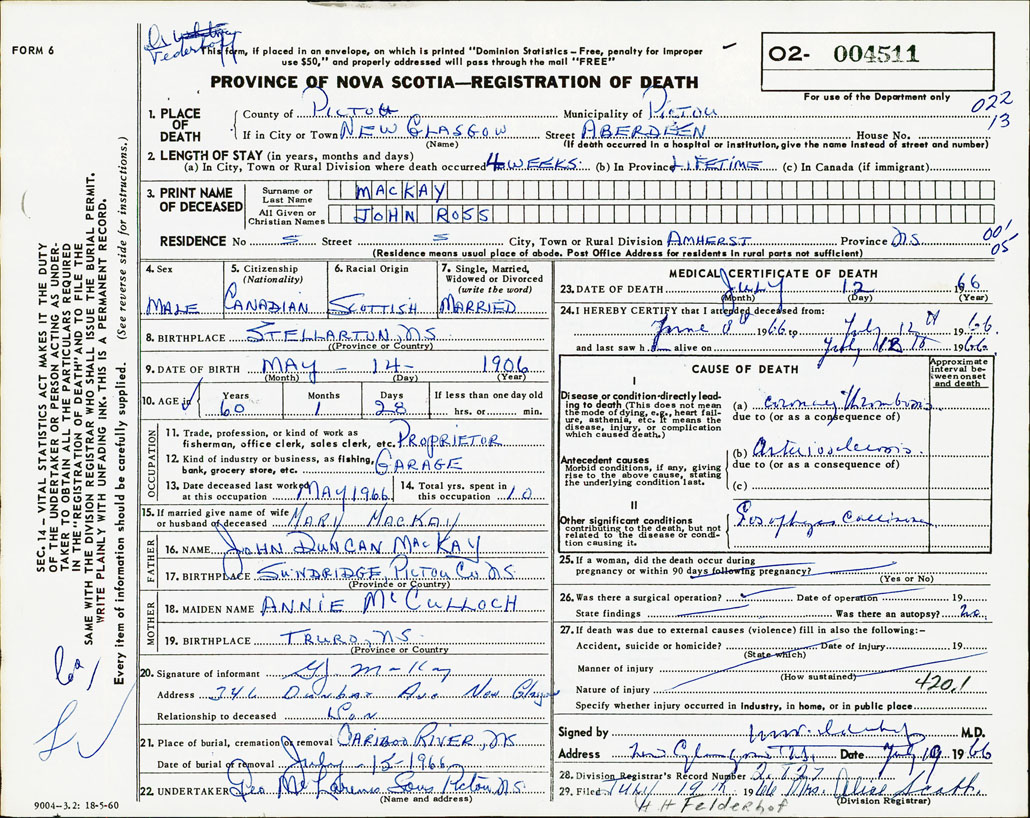 FORM 6
This form, if placed in an envelope, on which is printed "Dominion Statistics – Free, penalty for improper
use $50," and properly addressed will pass through the mail "FREE"
PROVINCE OF NOVA SCOTIA—REGISTRATION OF DEATH
O2- 004511
For use of the Department only
022
13
1. PLACE OF DEATH
County of PICTOU Municipality of PICTOU
If in City or Town NEW GLASGOW Street ABERDEEN House No.
(Name) (If death occurred in a hospital or institution, give the name instead of street and number)
2. LENGTH OF STAY (in years, months and days)
(a) In City, Town or Rural Division where death occurred 4 WEEKS (b) In Province LIFETIME (c) In Canada (if immigrant)
3. PRINT NAME OF DECEASED
Surname or Last Name MACKAY
All Given or Christian Names JOHN ROSS
RESIDENCE No Street City, Town or Rural Division AMHERST Province NS
001
05
(Residence means usual place of abode. Post Office Address for residents in rural parts not sufficient)
4. Sex MALE
5. Citizenship (Nationality) CANADIAN
6. Racial Origin SCOTTISH
7. Single, Married, Widowed or Divorced (write the word) MARRIED
8. BIRTHPLACE STELLARTON, NS.
(Province or Country)
9. DATE OF BIRTH MAY - 14 - 1906
(Month) (Day) (Year)
10. AGE in Years 60 Months 1 Days 28 If less than one day old hrs. or min.
OCCUPATION
11. Trade, profession, or kind of work as
fisherman, office clerk, sales clerk, etc. PROPRIETOR
12. Kind of industry or business, as fishing,
bank, grocery store, etc. GARAGE
13. Date deceased last worked
at this occupation MAY 1966
14. Total yrs. spent in
this occupation 10
15. If married give name of wife
or husband of deceased MARY MACKAY
FATHER
16. NAME JOHN DUNCAN MACKAY
17. BIRTHPLACE SUNDRIDGE, PICTOU CO NS
(Province or Country)
MOTHER
18. MAIDEN NAME ANNIE McCULLOCH
19. BIRTHPLACE TRURO, NS.
(Province or Country)
20. Signature of informant
Address Dunbar Ave New Glasgow
Relationship to deceased Son
21. Place of burial, cremation or removal CARIBOO RIVER, NS
Date of burial or removal July - 15 - 1966
22. UNDERTAKER Geo McLarens Sons Pictou NS.
(Name and address)
MEDICAL CERTIFICATE OF DEATH
23. DATE OF DEATH JULY 12 1966
(Month) (Day) (Year)
24. I HEREBY CERTIFY that I attended deceased from:
June 8th 1966 to July 12th 1966
and last saw h alive on July 12th 1966
CAUSE OF DEATH
Approximate interval between onset and death
I
Disease or condition directly leading to death (This does not mean the mode of dying, e.g., heart failure, asthenia, etc. It means the disease, injury, or complication which caused death.)
(a) Coronary Thrombosis
due to (or as a consequence of)
Antecedent causes
Morbid conditions, if any, giving rise to the above cause, stating the underlying condition last.
(b) Arteriosclerosis
due to (or as a consequence of)
(c)
II
Other significant conditions
contributing to the death, but not related to the disease or condition causing it.
25. If a woman, did the death occur during
pregnancy or within 90 days following pregnancy?
(Yes or No)
26. Was there a surgical operation? Date of operation 19
State findings Was there an autopsy? no
27. If death was due to external causes (violence) fill in also the following:–
Accident, suicide or homicide? Date of injury 19
(State which)
Manner of injury
(How sustained)
Nature of injury
420.1
Specify whether injury occurred in industry, in home, or in public place
Signed by M.D.
Address New Glasgow N.S. Date July 19 1966
28. Division Registrar's Record Number
29. Filed July 19th 1966 Mrs. Alice Scott.
(Division Registrar)
H H Felderhof
SEC. 14 – VITAL STATISTICS ACT MAKES IT THE DUTY
OF THE UNDERTAKER OR PERSON ACTING AS UNDER-
TAKER TO OBTAIN ALL THE PARTICULARS REQUIRED
IN THE "REGISTRATION OF DEATH" AND TO FILE THE
SAME WITH THE DIVISION REGISTRAR WHO SHALL ISSUE THE BURIAL PERMIT.
WRITE PLAINLY WITH UNFADING INK. THIS IS A PERMANENT RECORD.
Every item of information should be carefully supplied. (See reverse side for instructions.)
9004-3.2: 18-5-60